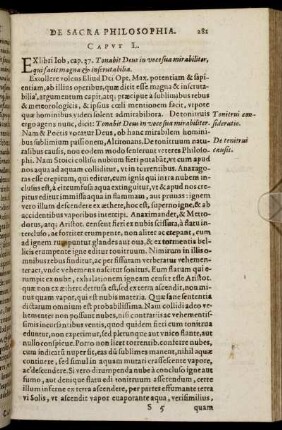 DE SACRA PHILOSOPHIA. 281
CAPVT L.
EX libri Iob, cap. 37. Tonabit Deus in voce sua mirabiliter,
qui facit magna & inscrutabilia.
Extollere volens Eliud Dei Opt. Max. potentiam & sapi-
entiam, ab illius operibus, quæ dicit esse magna & inscruta-
bilia, argumentum capit, atq; præcipuè a sublimioribus rebus
& meteorologicis, & ipsius cœli mentionem facit, vipote
quæ hominibus videri solent admirabiliora. De tonitruis
ergo nunc, dicit: Tonabit Deus in voce sua mirabiliter.
Tonitrui con-
sideratio.
Nam & Poëtis vocatur Deus, ob hanc mirabilem homini-
bus sublimium passionem, Altitonans. De tonitruum natu-
ralibus causis, non eodem modo senserunt veteres Philoso-
De tonitrui
causis.
phi. Nam Stoici collisione nubium fieri potabāt, vt eum apud
nos aqua ad aquam collisa facit, vt in vi torrentibus. Anaxago-
ras esse crepitum, qui editur, cum ignis qui intra nubem in-
clusus est, à circumfusa aqua extinguitur, vt & apud nos cre-
pitus editur immisso aqua in flammam, aut prunas: ignem
vero illum descendere ex æthere, hoc est, supremo igne, & ab
accidentibus vaporibus intercipi. Anaximander, & Metro-
dorus, atq; Aristot. senserunt fieri ex nubis scissura, à statu in-
cluso, ne fortiter erumpente, non aliter ac crepant, cum
ad ignem rumpuntur glandes aut oua, & ex tormentis bel-
licis erumpente igne editur tonitruum. Nimirum in illis o-
mnibus status includitur, ac per fissuram verberat vehemen-
ter aer, vnde vehemens nascitur sonitus. Eum statum qui e-
rumpit ex nube, licet Anaxagoras ignem censet esse Aristot.
quæ non ex æthere descendat, sed ex terra ascendit, non mi-
nus quam vapor, qui est nubis materia. Quæ sanè sententia
dictarum omnium est probabilissima. Nam collidi adeo ve-
hementer non possunt nubes, nisi contrariis ac vehementis-
simis incursantibus ventis, quod quidem fieri cum tonitrua
eduntur, non experimur, sed plerunque aut vnico flante, aut
nullo conspicitur. Porro non licet torrentib. conferre nubes,
cum indicta nuper sic, eas ab sublimia manere, nihil aquæ
continere, sed simul in aquam mutari cæci essere vapore,
ac descendere. Si vero dirumpenda à nube conclusio igne aut
fumo, aut denique statu edi tonitruum assertendum, certe
illum inferne ex terra ascendere, per parteseffumante terra
vi Solis, vt ascendit vapor euaporante aqua, verisimilius,
S 5 quam